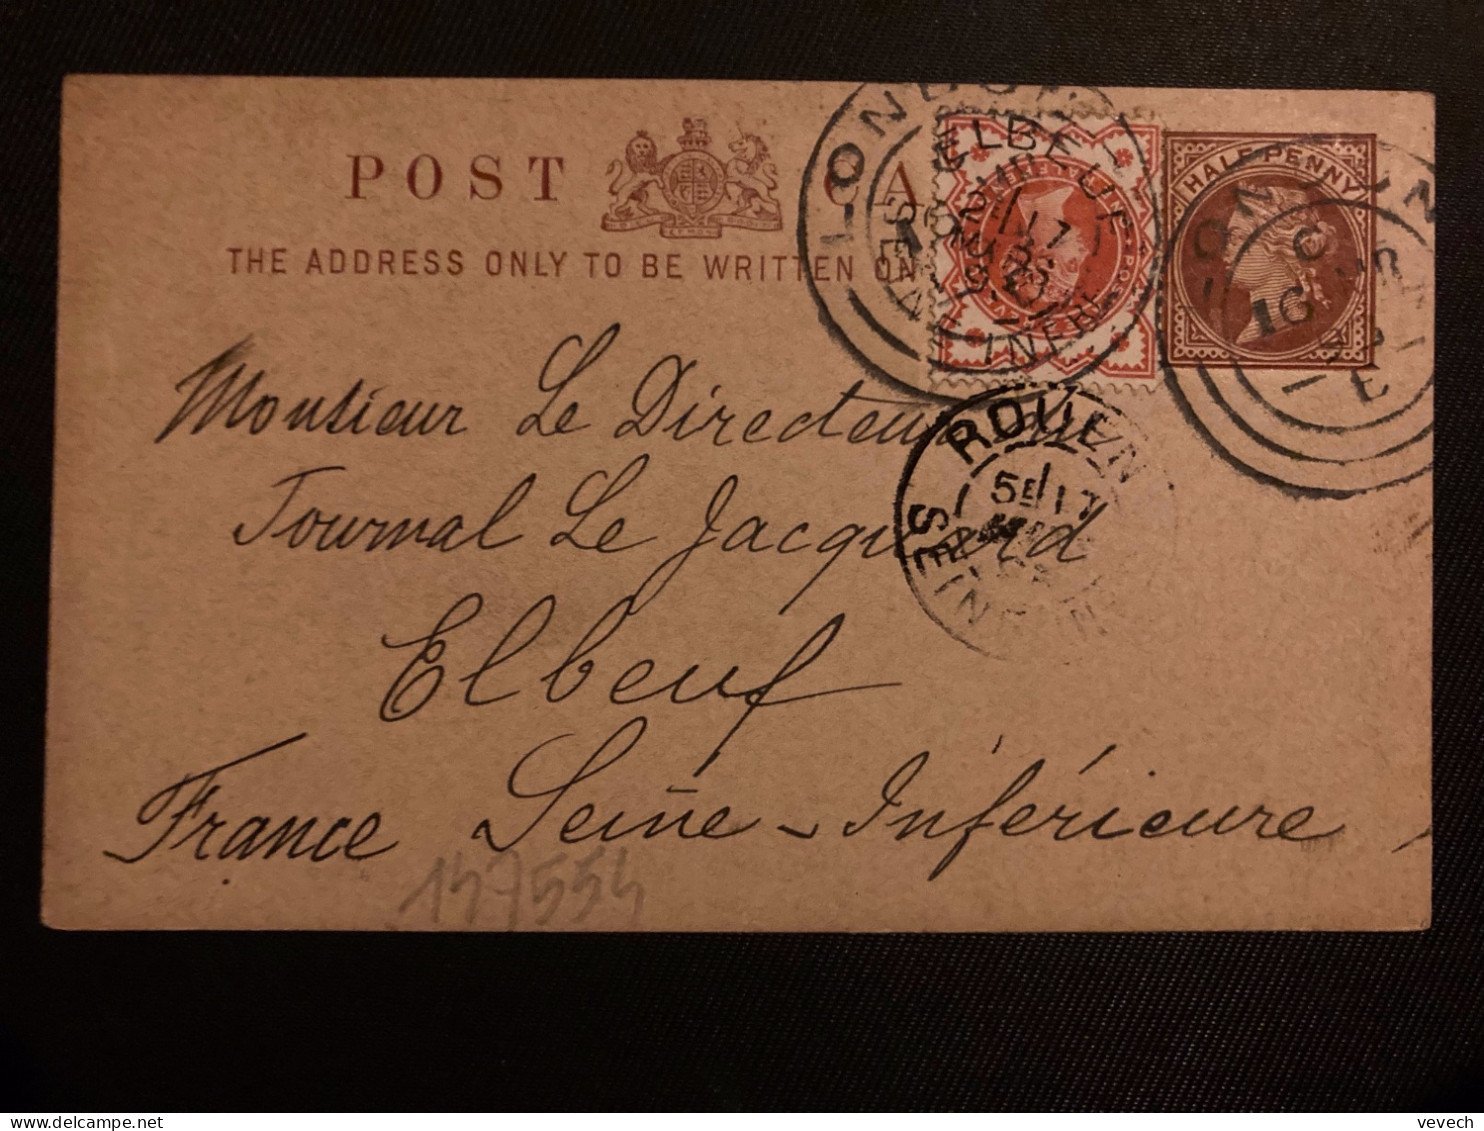 POST CA
THE ADDRESS ONLY TO BE WRITTEN ON
HALF PENNY
LONDON
ELBEUF
SEINE INFRE
LONDON
C
16
E
ROUEN
5E 17
SEINE INF
Monsieur Le Directeur du
Journal Le Jacquard
Elbeuf
France Seine-Inférieure
147554
vevech